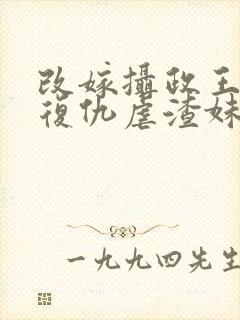 改嫁攝政王
復仇虐渣妹
一九九四先生